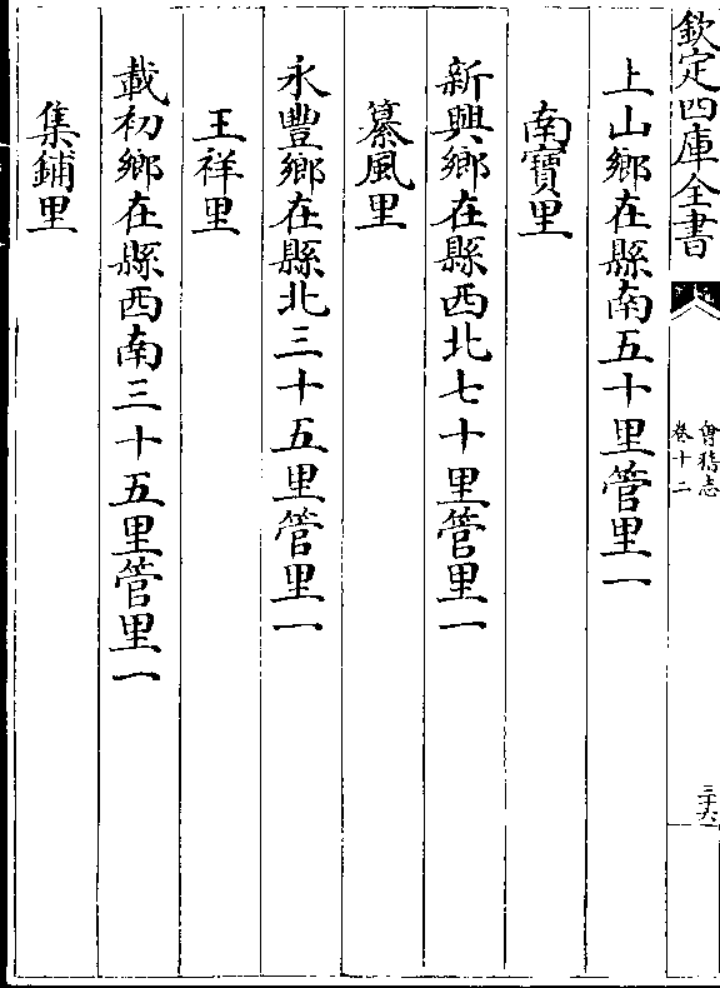 欽定四庫全書
會稽志
卷十二
三十六
上山鄉在縣南五十里管里一
南寶里
新興鄉在縣西北七十里管里一
纂風里
永豐鄉在縣北三十五里管里一
王祥里
載初鄉在縣西南三十五里管里一
集鋪里